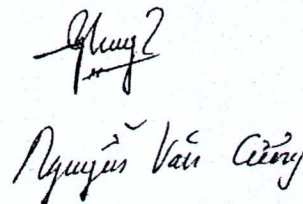 Nguyễn Văn Cường